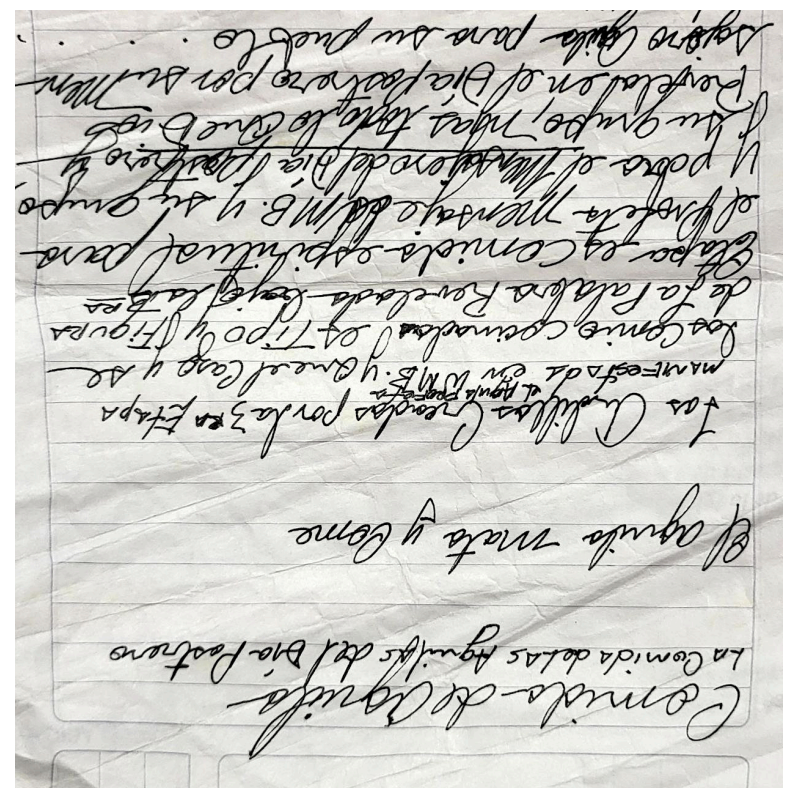 Comida de Aguila
La Comida de Las Aguilas del Día Postrero
El aguila mata y Come
Las Ardillas Creadas por la 3ra Etapa
el Aguila Profeta
manifestada en WMB. y que el Cazo y se
las Comio cocinadas) es Tipo y (Figura
de La Palabra Revelada bajo la 3ra
Etapa es Comida espiritual para
el Profeta Mensaje del MB. y su grupo,
y para el Mensajero del Día postrero y
y su grupo, mas todo lo que Dios
Revela en el Día postrero por su Men-
sajero Aguila para su pueblo . . . .